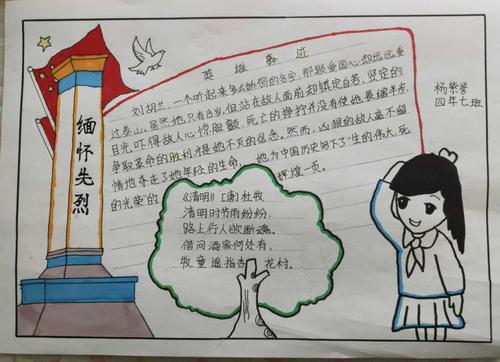 英雄事迹
刘胡兰,一个听起来多么娇弱的名字,那颗爱国心却远远重
过泰山,虽然她只有15岁,但站在敌人面前却镇定自若,坚定的
目光吓得敌人心惊胆颤,死亡的挣拧并没有使她畏缩半步,
争取革命的胜利才是她不灭的信念。然而,凶狠的敌人毫不留
情地夺走了她年轻的生命,她为中国历史写下了“生的伟大,死
的光荣”的辉煌一页。
杨紫誉
四年七班
缅怀先烈
《清明》[唐]杜牧
清明时节雨纷纷,
路上行人欲断魂。
借问酒家何处有,
牧童遥指杏花村。